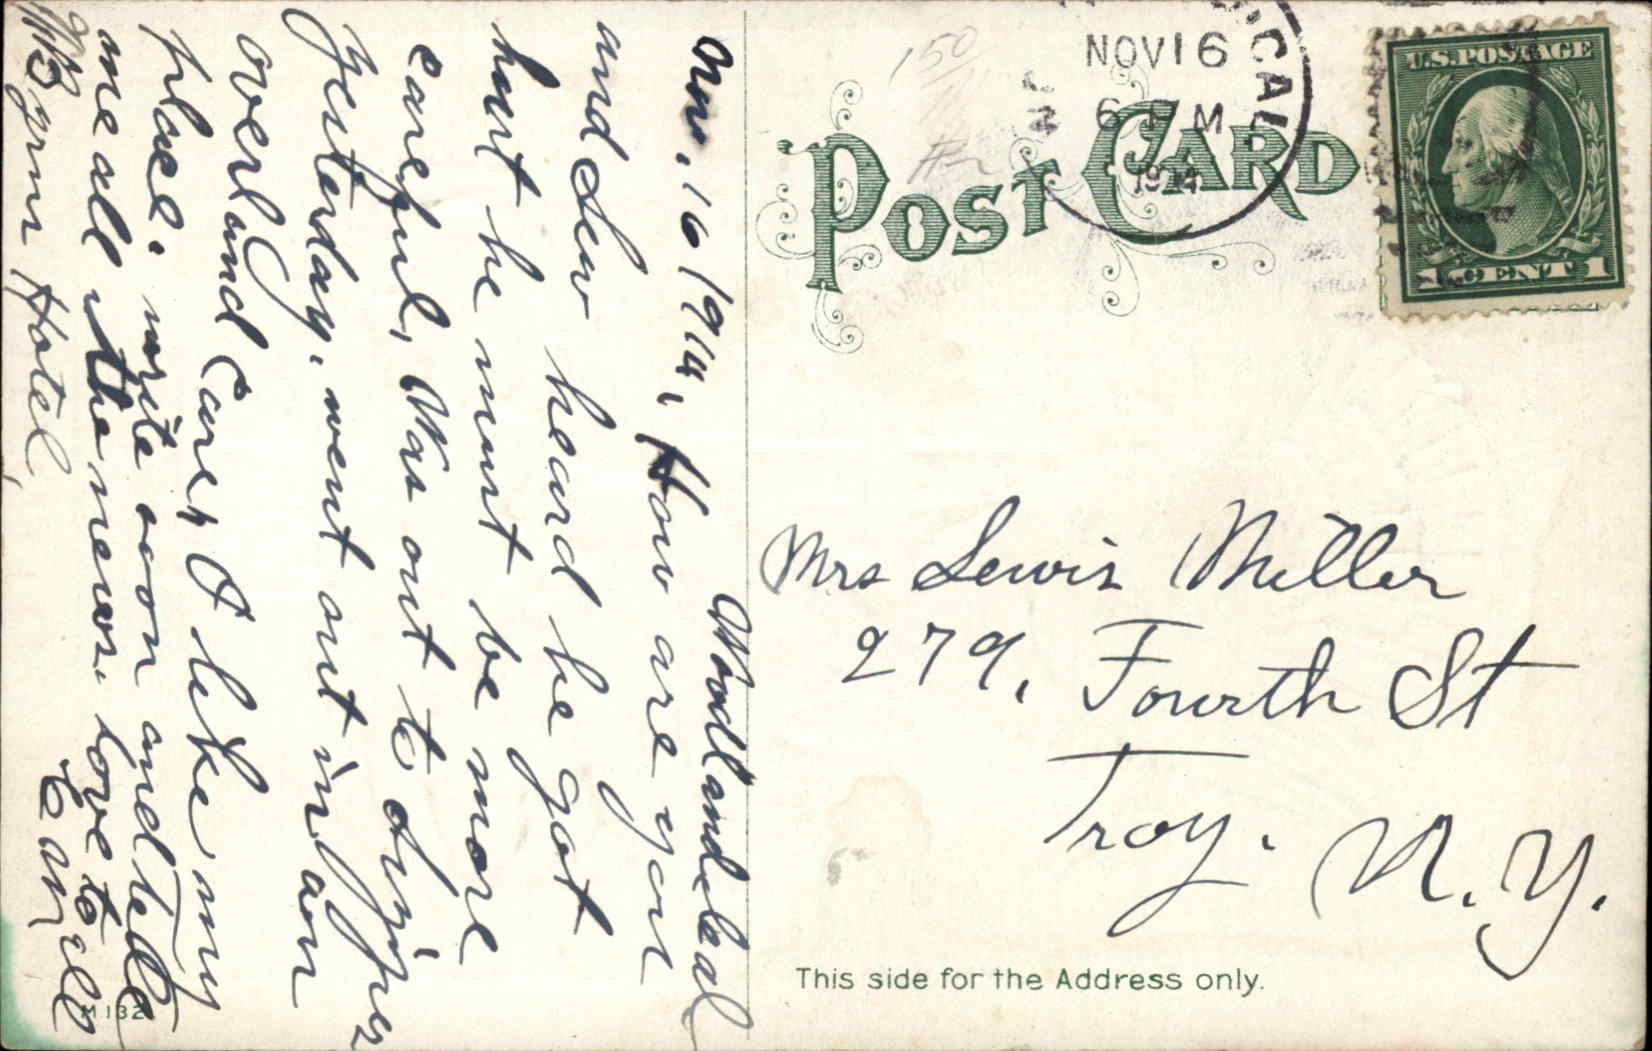 Woodland Cal
Nov. 16 1914,
How are you
and Lew heard he got
hurt he must be more
careful, Was out to dinner
yesterday, went out in an
overland Car, I like my
place. write soon and tell
me all the news. love to all
Earn
Byrns Hotel,
150
NOV 16
6 PM
1914
CAL
U.S. POSTAGE
1 CENT 1
POST CARD
Mrs Lewis Miller
279, Fourth St
Troy. N.Y.
This side for the Address only.
M 132